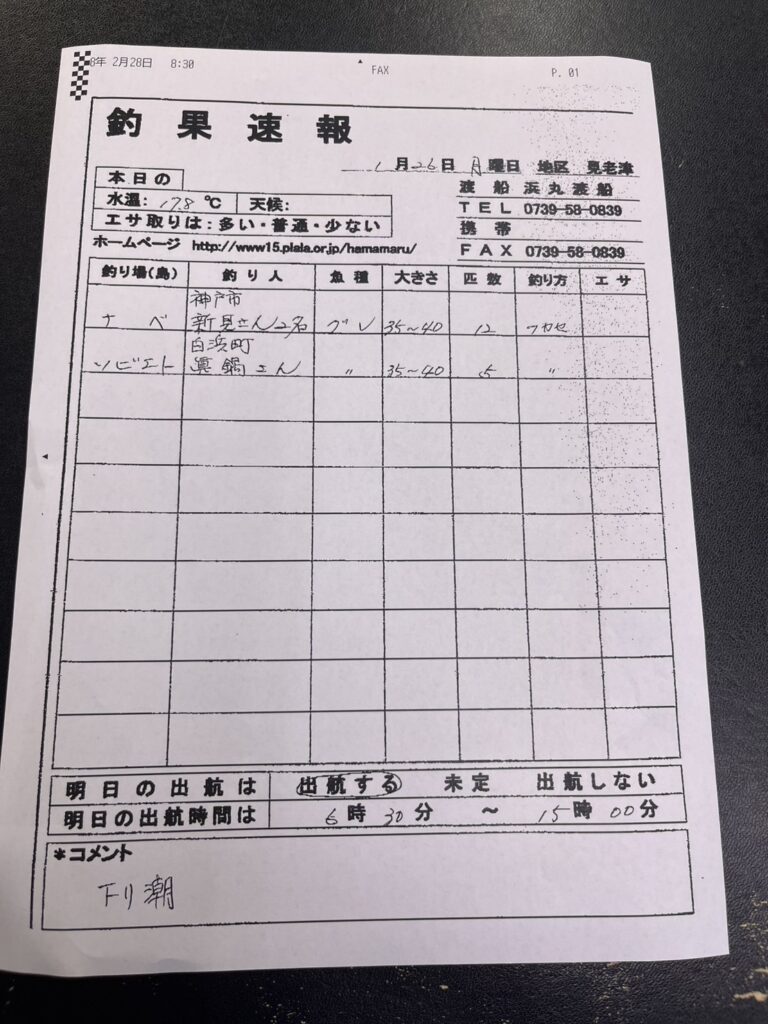 8年 2月28日 8:30 FAX P. 01
釣果速報
1月26日 月曜日 地区 見老津
本日の
水温: 17.8 ℃ 天候:
エサ取りは:多い・普通・少ない
渡船 浜丸渡船
TEL 0739-58-0839
携帯
FAX 0739-58-0839
ホームページ http://www15.plala.or.jp/hamamaru/
釣り場(島) 釣り人 魚種 大きさ 匹数 釣り方 エサ
神戸市
ナベ 新見さん2名 グレ 35~40 12 フカセ
白浜町
ソビエト 眞鍋さん 〃 35~40 5 〃
明日の出航は 出航する 未定 出航しない
明日の出航時間は 6時30分 ~ 15時00分
*コメント
下り潮